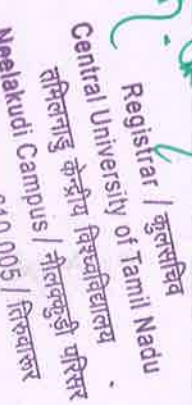 Registrar / कुलसचिव
Central University of Tamil Nadu
तमिलनाडु केन्द्रीय विश्वविद्यालय
Neelakudi Campus / नीलक्कुडी परिसर
610 005 / तिरुवारूर